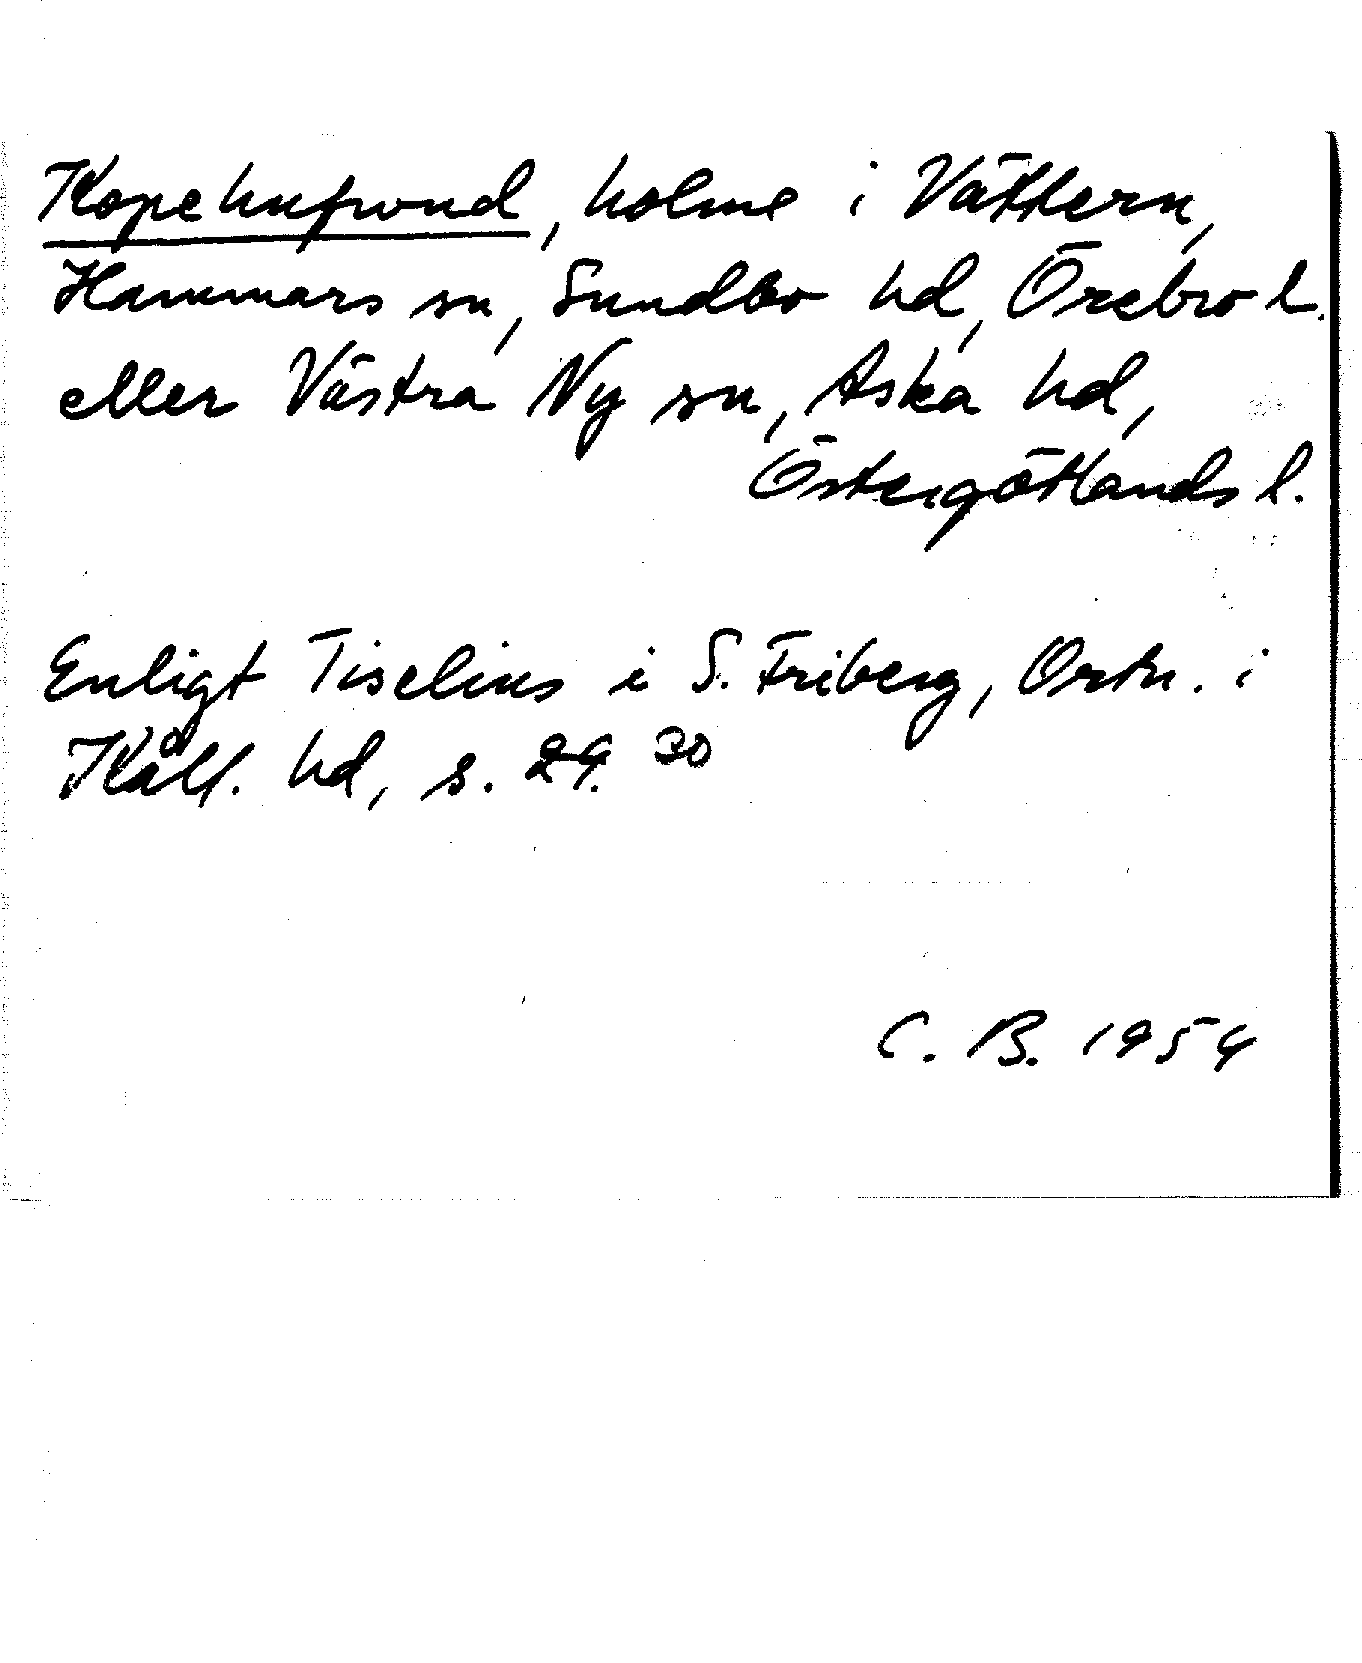 Kopehufwud, holme i Vättern,
Hammars sn, Sundbo hd, Örebro l.
eller Västra Ny sn, Aska hd,
Östergötlands l.
Enligt Tiselius i S. Friberg, Ortn. i
Kåll. hd, s. 29. 30
C. B. 1954